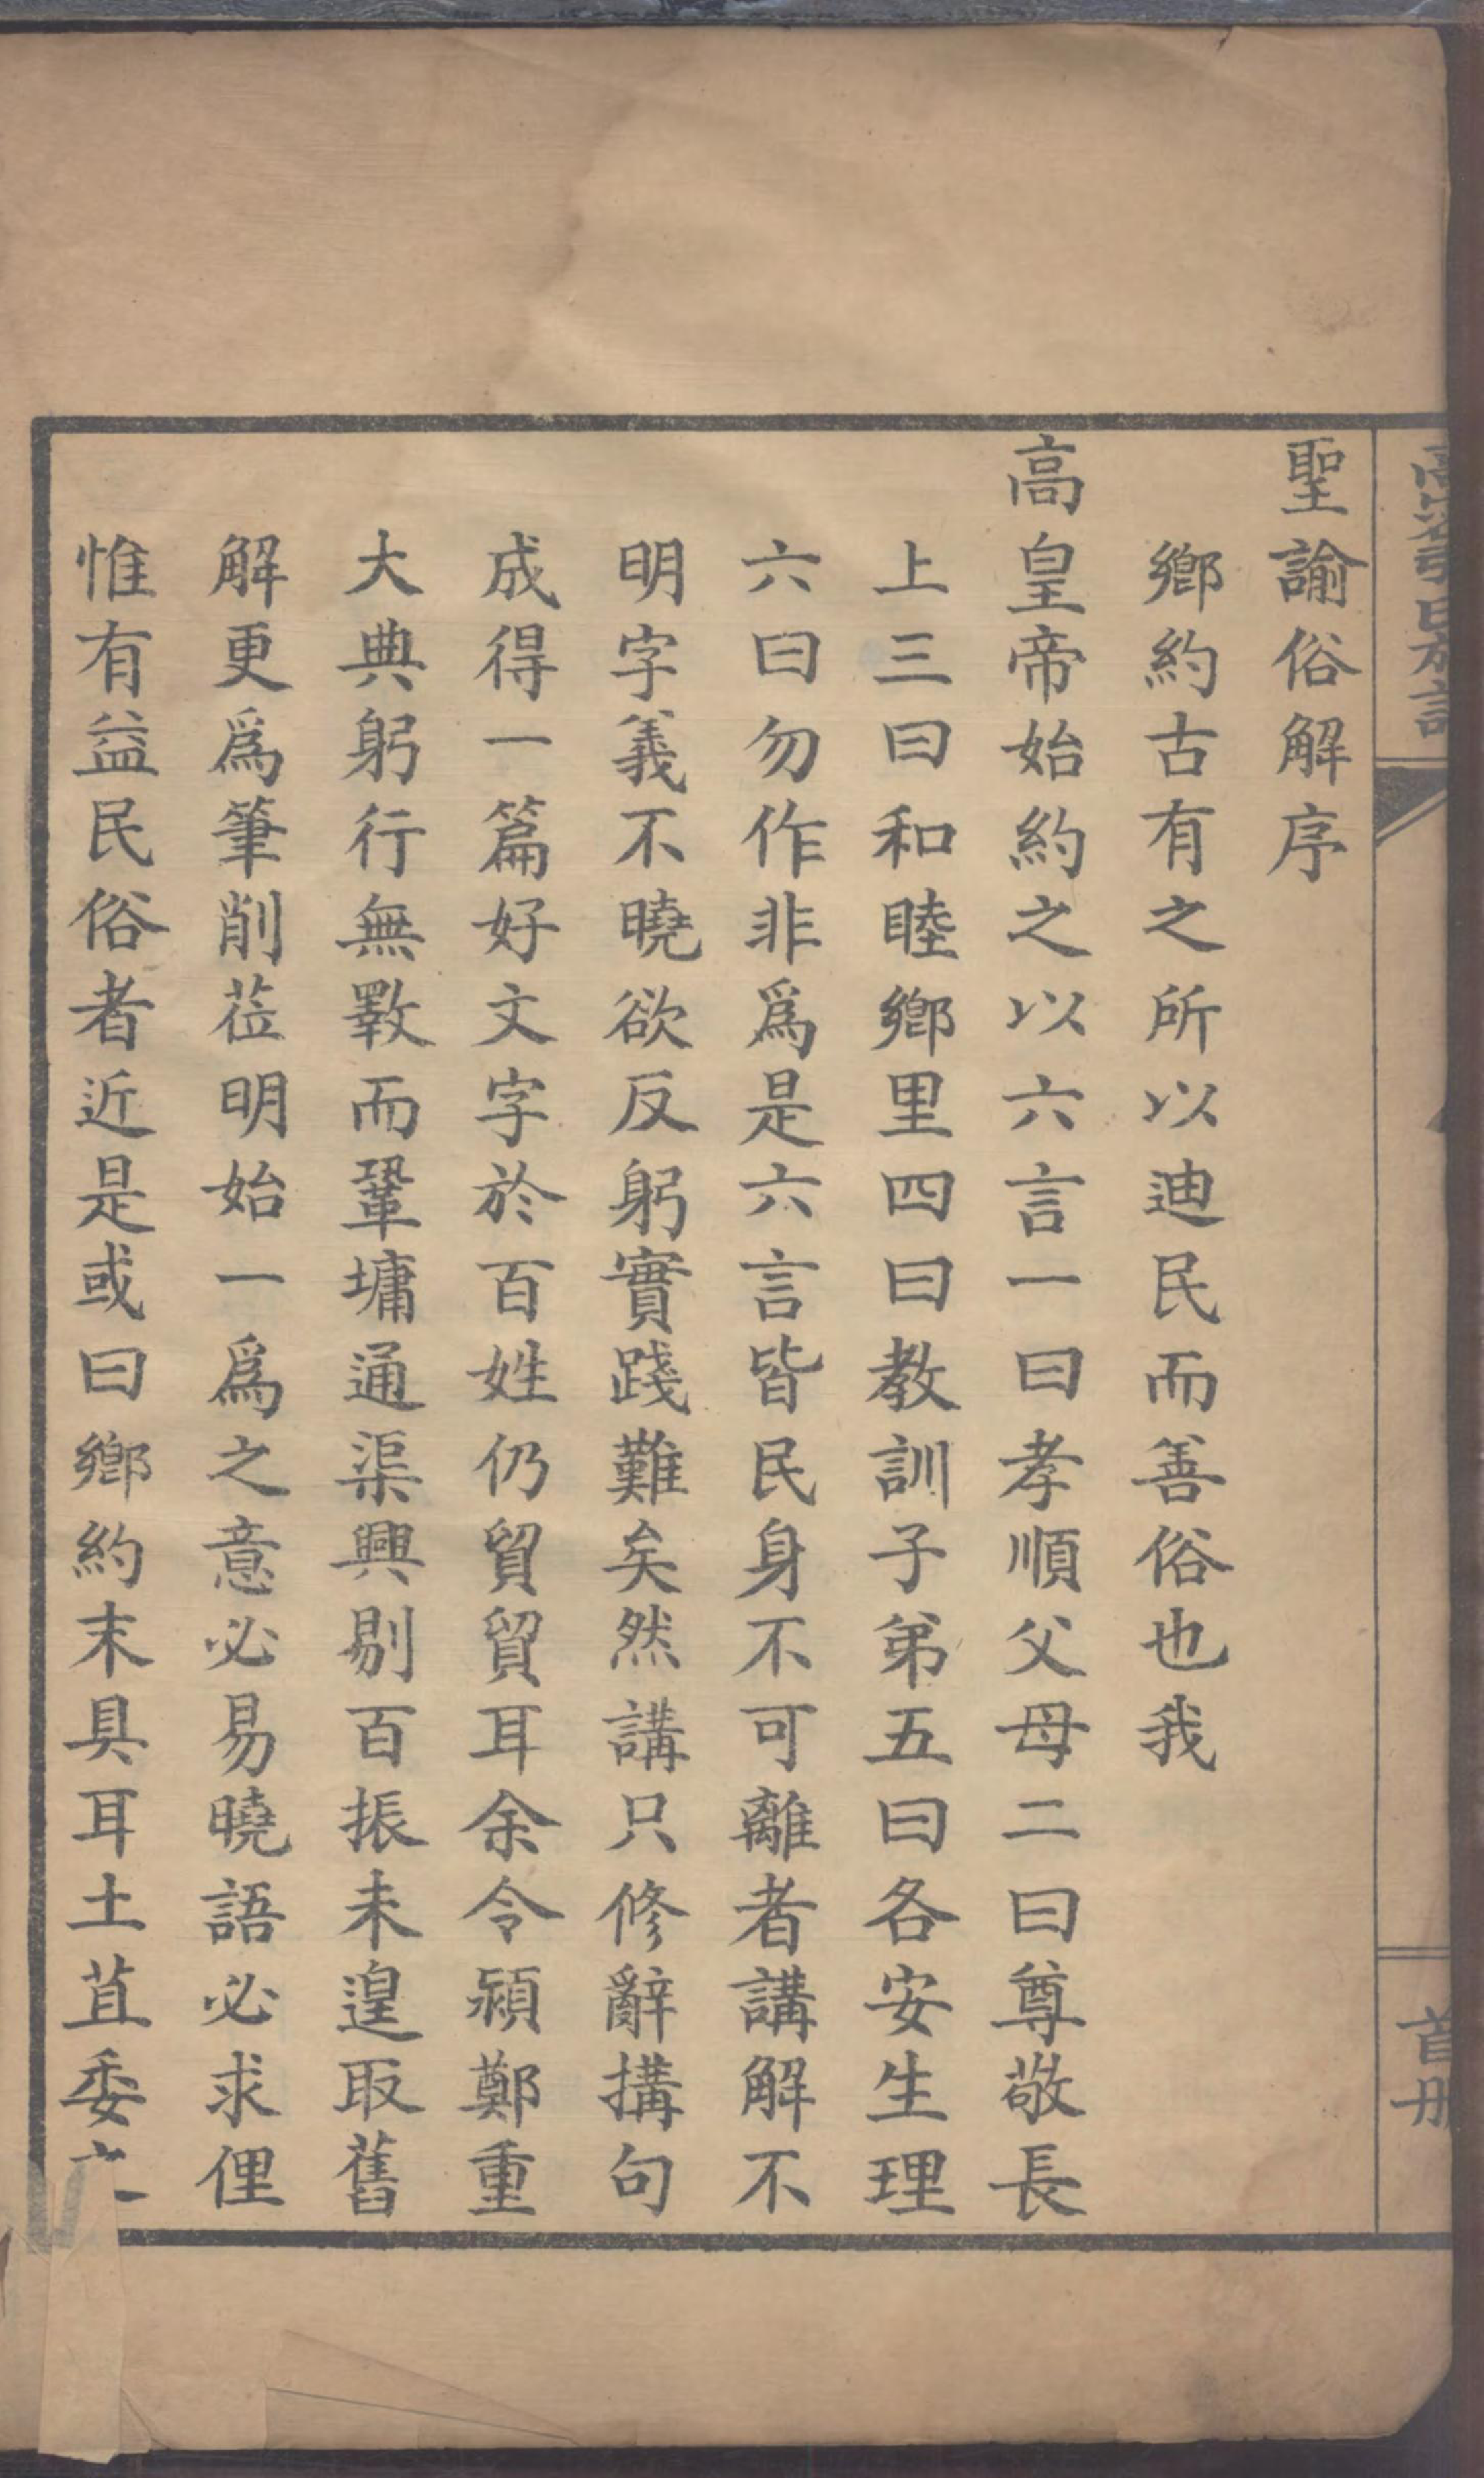 聖諭俗解序
鄉約古有之所以迪民而善俗也我
高皇帝始約之以六言一曰孝順父母二曰尊敬長
上三曰和睦鄉里四曰教訓子弟五曰各安生理
六曰勿作非爲是六言皆民身不可離者講解不
明字義不曉欲反躬實踐難矣然講只修辭搆句
成得一篇好文字於百姓仍貿貿耳余令潁鄭重
大典躬行無斁而鞏墉通渠興剔百振未遑取舊
解更爲筆削莅明始一爲之意必易曉語必求俚
惟有益民俗者近是或曰鄉約末具耳土苴委
首册